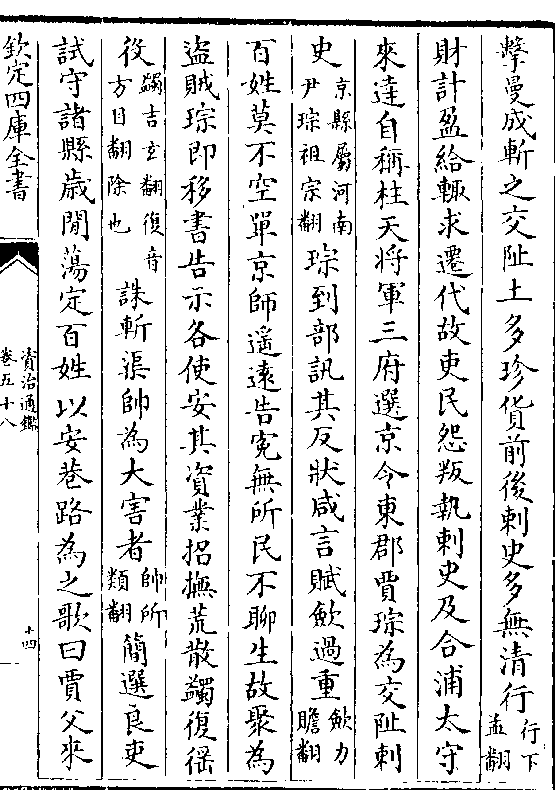 擊曼成斬之交阯土多珍貨前後刺史多無清行行下孟翻
財計盈給輙求遷代故吏民怨叛執刺史及合浦太守
來達自稱柱天將軍三府選京令東郡賈琮為交阯刺
史京縣屬河南尹琮祖宗翻琮到部訊其反狀咸言賦斂過重斂力贍翻
百姓莫不空單京師遥遠告寃無所民不聊生故聚為
盗賊琮即移書告示各使安其資業招撫荒散蠲復徭
役蠲吉玄翻復音方目翻除也誅斬渠帥為大害者帥所類翻簡選良吏
試守諸縣歲間蕩定百姓以安巷路為之歌曰賈父來
欽定四庫全書
資治通鑑
卷五十八
十四